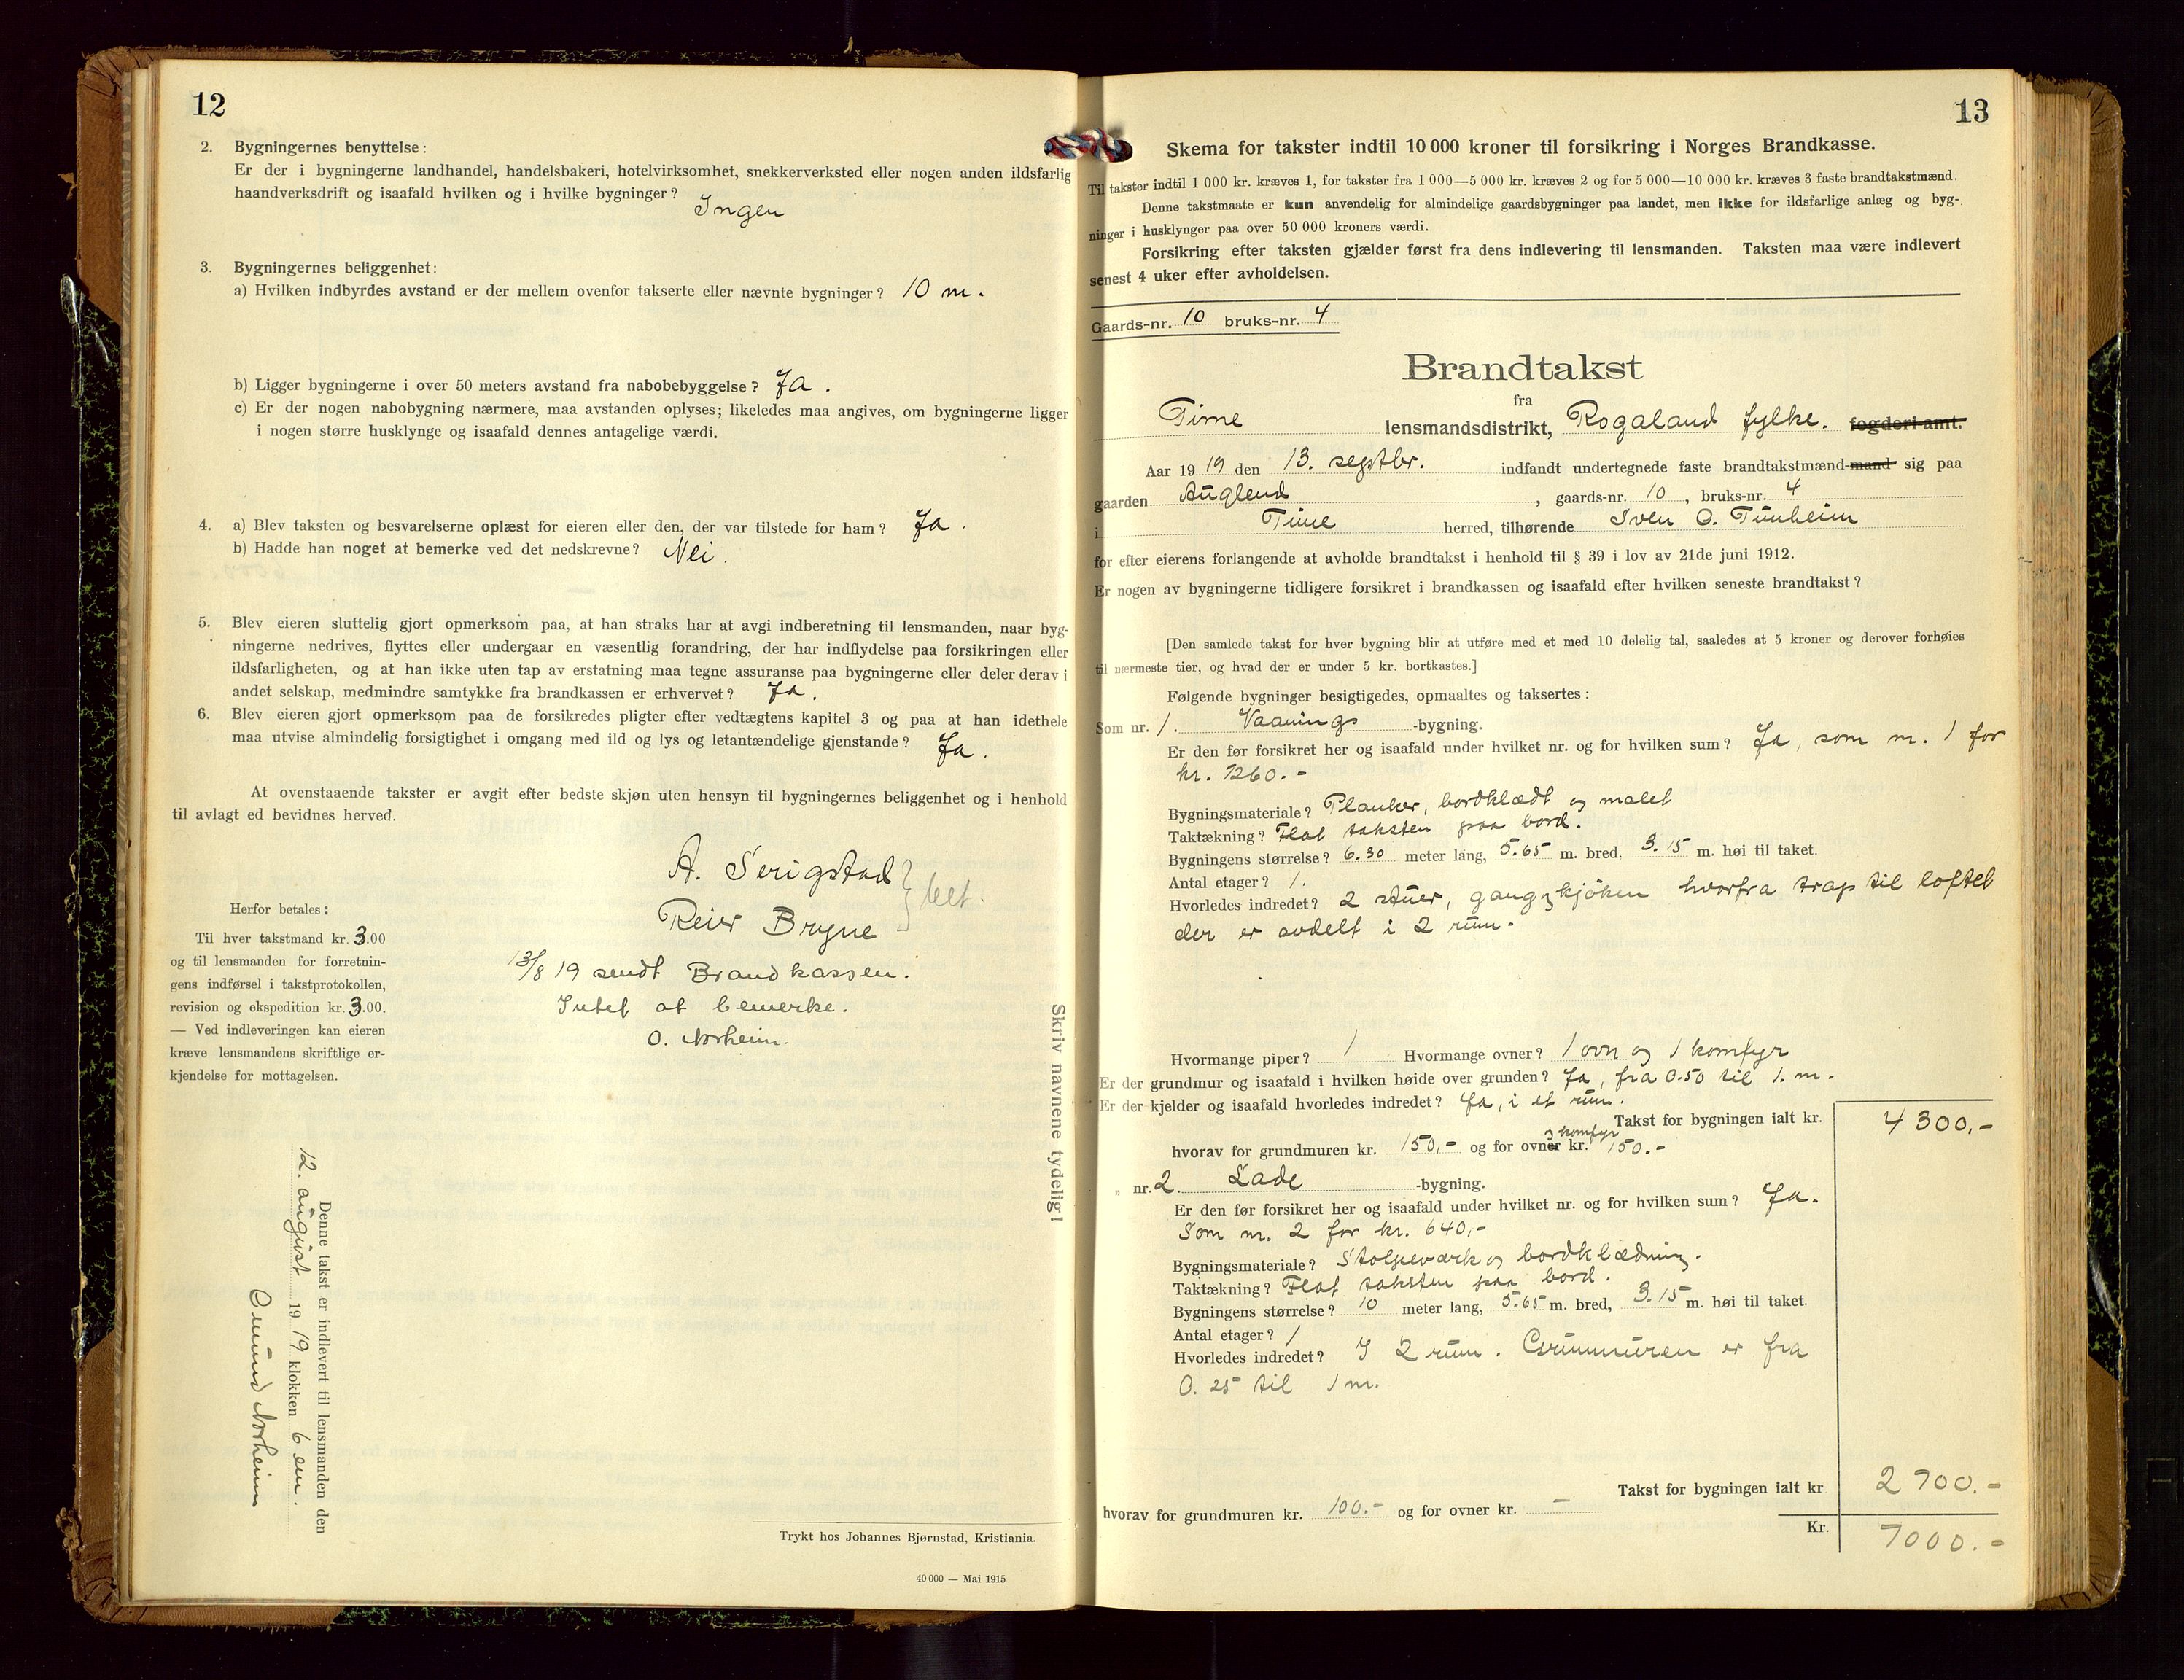 12
2. Bygningernes benyttelse:
Er der i bygningerne landhandel, handelsbakeri, hotelvirksomhet, snekkerverksted eller nogen anden ildsfarlig
haandverksdrift og isaafald hvilken og i hvilke bygninger? Ingen
3. Bygningernes beliggenhet:
a) Hvilken indbyrdes avstand er der mellem ovenfor takserte eller nævnte bygninger? 10 m.
b) Ligger bygningerne i over 50 meters avstand fra nabobebyggelse? Ja.
c) Er der nogen nabobygning nærmere, maa avstanden oplyses; likeledes maa angives, om bygningerne ligger
i nogen større husklynge og isaafald dennes antagelige værdi.
4. a) Blev taksten og besvarelserne oplæst for eieren eller den, der var tilstede for ham? Ja.
b) Hadde han noget at bemerke ved det nedskrevne? Nei.
5. Blev eieren sluttelig gjort opmerksom paa, at han straks har at avgi indberetning til lensmanden, naar byg-
ningerne nedrives, flyttes eller undergaar en væsentlig forandring, der har indflydelse paa forsikringen eller
ildsfarligheten, og at han ikke uten tap av erstatning maa tegne assuranse paa bygningerne eller deler derav i
andet selskap, medmindre samtykke fra brandkassen er erhvervet? Ja.
6. Blev eieren gjort opmerksom paa de forsikredes pligter efter vedtægtens kapitel 3 og paa at han idethele
maa utvise almindelig forsigtighet i omgang med ild og lys og letantændelige gjenstande? Ja.
At ovenstaaende takster er avgit efter bedste skjøn uten hensyn til bygningernes beliggenhet og i henhold
til avlagt ed bevidnes herved.
A. Serigstad
Reier Bryne } bet.
13/8 19 sendt Brandkassen.
Intet at bemerke.
O. Norheim.
Herfor betales:
Til hver takstmand kr. 3.00
og til lensmanden for forretnin-
gens indførsel i takstprotokollen,
revision og ekspedition kr. 3.00.
— Ved indleveringen kan eieren
kræve lensmandens skriftlige er-
kjendelse for mottagelsen.
Denne takst er indlevert til lensmanden den
12. august 1919 klokken 6 em.
Omund Norheim
Skriv navnene tydelig!
Trykt hos Johannes Bjørnstad, Kristiania.
40 000 — Mai 1915
13
Skema for takster indtil 10 000 kroner til forsikring i Norges Brandkasse.
Til takster indtil 1 000 kr. kræves 1, for takster fra 1 000—5 000 kr. kræves 2 og for 5 000—10 000 kr. kræves 3 faste brandtakstmænd.
Denne takstmaate er kun anvendelig for almindelige gaardsbygninger paa landet, men ikke for ildsfarlige anlæg og byg-
ninger i husklynger paa over 50 000 kroners værdi.
Forsikring efter taksten gjælder først fra dens indlevering til lensmanden. Taksten maa være indlevert
senest 4 uker efter avholdelsen.
Gaards-nr. 10 bruks-nr. 4
Brandtakst
fra
Time lensmandsdistrikt, Rogaland fylke. fogderi amt.
Aar 1919 den 13. septbr. indfandt undertegnede faste brandtakstmænd-mand sig paa
gaarden Auglend, gaards-nr. 10, bruks-nr. 4
i Time herred, tilhørende Sven O. Tunheim
for efter eierens forlangende at avholde brandtakst i henhold til § 39 i lov av 21de juni 1912.
Er nogen av bygningerne tidligere forsikret i brandkassen og isaafald efter hvilken seneste brandtakst?
[Den samlede takst for hver bygning blir at utføre med et med 10 delelig tal, saaledes at 5 kroner og derover forhøies
til nærmeste tier, og hvad der er under 5 kr. bortkastes.]
Følgende bygninger besigtigedes, opmaaltes og taksertes:
Som nr. 1. Vaanings-bygning.
Er den før forsikret her og isaafald under hvilket nr. og for hvilken sum? Ja, som nr. 1 for
kr. 1260.-
Bygningsmateriale? Planker, bordklædt og malet
Taktækning? Flat taksten paa bord.
Bygningens størrelse? 6.30 meter lang, 5.65 m. bred, 3.15 m. høi til taket.
Antal etager? 1.
Hvorledes indredet? 2 stuer, gang og kjøken hvorfra trap til loftet
der er avdelt i 2 rum.
Hvormange piper? 1 Hvormange ovner? 1 ovn og 1 komfyr
Er der grundmur og isaafald i hvilken høide over grunden? Ja, fra 0.50 til 1. m.
Er der kjelder og isaafald hvorledes indredet? Ja, i et rum.
Takst for bygningen ialt kr. 4300,-
hvorav for grundmuren kr. 150,- og for ovner og komfyr kr. 150.-
„ nr. 2. Lade-bygning.
Er den før forsikret her og isaafald under hvilket nr. og for hvilken sum? Ja.
Som nr. 2 for kr. 640,-
Bygningsmateriale? Stolpeværk og bordklædning.
Taktækning? Flat taksten paa bord.
Bygningens størrelse? 10 meter lang, 5.65 m. bred, 3.15 m. høi til taket.
Antal etager? 1
Hvorledes indredet? I 2 rum. Grunmuren er fra
0.25 til 1 m.
Takst for bygningen ialt kr 2700.-
hvorav for grundmuren kr. 100.- og for ovner kr. —
Kr. 7000.-